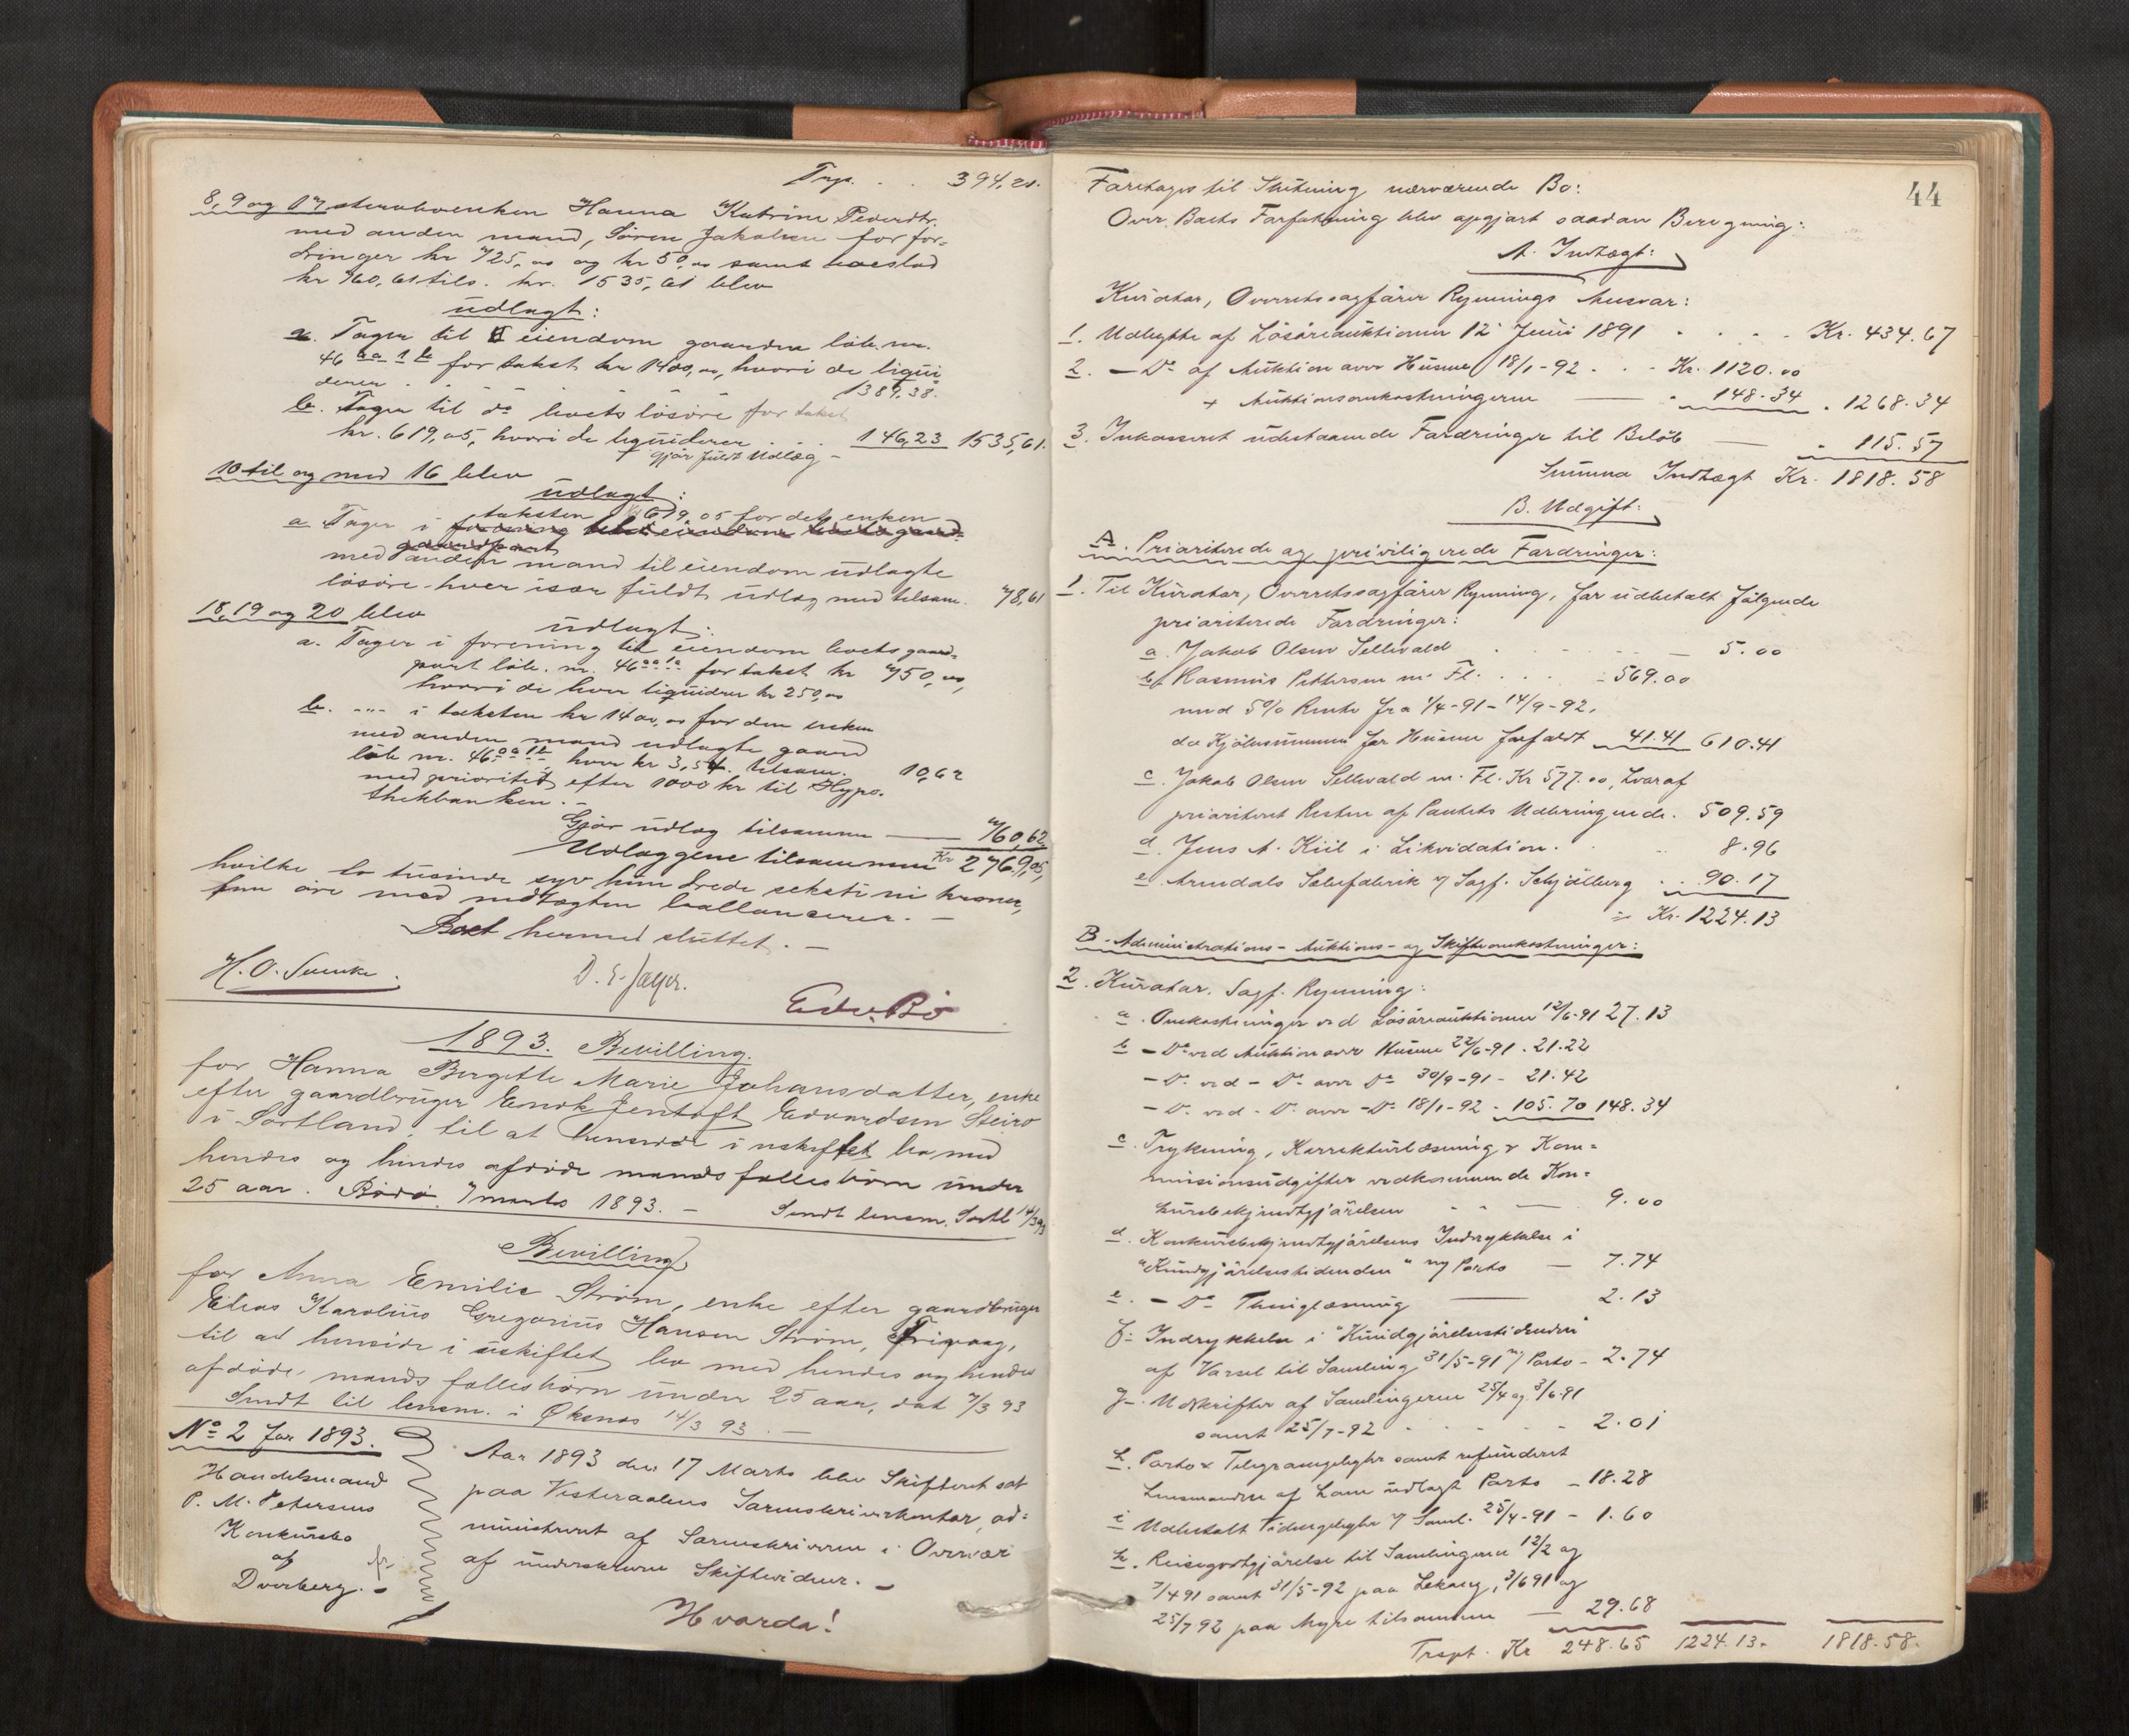 Trsp. . . 394,21.
8, 9 og 17, sterbokenken Hanna Katrine Pedersdtr.
med anden mand, Sören Jakobsen for for-
dringer kr 725,00 og kr 50,00 samt boeslod
kr 760,61 tils. kr. 1535,61 blev
udlagt:
a. Tages til eiendom gaarden löb. nr.
46 aa 1 b for takst kr 1400,00, hvori de liqui
derer . . . . . . 1389,38.
b. Tages til do boets lösöre for takst
kr. 619,05, hvori de liquiderer . . . 146,23 1535,61.
gjør fuldt Udlæg -
10 til og med 16 blev
udlagt:
a Tages i taksten kr 619,05 for det enken
med anden mand til eiendom udlagte
lösöre hver især fuldt udlæg med tilsam. 78,61
18, 19 og 20 blev
udlagt:
a. Tages i forening til eiendom boets gaard-
part löb. nr. 46 aa 1a for takst kr 750,00,
hvori de hver liquiderer kr 250,00
b. -"- i taksten kr 1400,00 for den enken
med anden mand udlagte gaard
löb nr. 46 aa 1b, hver kr 3,54. tilsam. 10,62
med prioritet efter 1000 kr til Hypo-
thekbanken. -
Gjör udlæg tilsammen 760,62
Udlæggene tilsammen Kr 2769,05,
hvilke to tusinde syv hundrede seksti ni kroner,
fem öre med indtægten ballancerer. -
Boet hermed sluttet. -
H. O. Svenke. D. E. Jæger.
Edv. Bö
1893. Bevilling.
for Hanna Bergitte Marie Johansdatter, enke
efter gaardbruger Enok Jentoft Edvardsen Steiro
i Sortland, til at hensidde i uskiftet bo med
hendes og hendes afdöde mands fællesbörn under
25 aar. Bodö 7 marts 1893. - Sendt lensm. Sortl 14/3 93
Bevilling
for Anna Emilie Ström, enke efter gaardbruger
Elias Karolius Gregorius Hansen Ström,
til at hensidde i uskiftet bo med hendes og hendes
afdöde mands fællesbörn under 25 aar, dat 7/3 93
Sendt til lensm. i Øksnes 14/3 93. -
No 2 for 1893.
Handelsmand
P. M. Petersens
Konkursbo
af
Dverberg. -
Aar 1893 den 17 Marts blev Skifteret sat
paa Vesteraalens Sorenskriverkontor, ad-
ministreret af Sorenskriveren i Overvær
af underskrevne Skiftevidner. -
Hvorda!
44
Foretoges til Slutning nærværende Bo:
Over Boets Forfatning blev opgjort saadan Beregning:
A. Indtægt:
Kurator, Overretssagförer Rynnings Ansvar:
1. Udbytte af Lösöreauktionen 12 Juni 1891 - . . . Kr. 434.67
2. - Do af Auktion over Husene 18/1-92 . . - Kr. 1120.00
+ Auktionsomkostningerne - 148.34 - 1268.34
3. Inkasseret udestaaende Fordringer til Belöb - 115.57
Summa Indtægt Kr. 1818.58
B. Udgift:
A. Prioriterede og priviligerede Fordringer:
1. Til Kurator, Overretssagförer Rynning, for udbetalt fölgende
prioriterede Fordringer:
a. Jakob Olsen Sellevold . . - - - 5.00
b. Rasmus Pettersen m. Fl. . . . - 569.00
med 5% Rente fra 1/4-91 - 14/9-92,
da Kjöbesummen for Husene forfaldt 41.41 610.41
c. Jakob Olsen Sellevold m. Fl. Kr 577.00, hvoraf
prioriteret Resten af Pantets Udbringende. 509.59
d. Jens A. Kiil i Likvidation. . - 8.96
e. Arendals Sæbefabrik v/ Sagf. Schjölberg . . 90.17
= Kr. 1224.13
B. Administrations- Auktions- og Skifteomkostninger:
2. Kurator. Sagf. Rynning:
a. Omkostninger ved Lösöreauktionen 12/6-91 27.13
b - Do ved Auktion over Husene 22/6-91 . 21.22
- Do ved - Do over Do 30/9-91 - 21.42
- Do ved - Do over - Do 18/1-92 - 105.70 148.34
c. Trykning, Korrekturlæsning & Kom-
missionsudgifter vedkommende Kon-
kursbekjendtgjörelsen - - — 9.00
d. Konkursbekjendtgjörelsens Indrykkelse i
"Kundgjörelsestidenden" m/ Porto — 7.74
e. - Do Thinglæsning — 2.13
f. Indrykkelse i "Kundgjörelsestidenden"
af Varsel til Samling 31/5-91 m/ Porto - 2.74
g. Udskrifter af Samlingerne 25/4 og 3/6 91
samt 25/7-92 - - - - - 2.01
h. Porto & Telegramudgifter samt refunderet
Lensmanden af ham udlagt Porto - 18.28
i Udbetalt Vidneudgifter v/ Saml. 25/4-91 - 1.60
k. Reisegodtgjörelse til Samlingerne 12/2 og
7/4 91 samt 31/5-92 paa Lekang, 3/6 91 og
25/7 92 paa Myre tilsammen — 29.68
Trspt. Kr 248.65 1224.13. 1818.58.